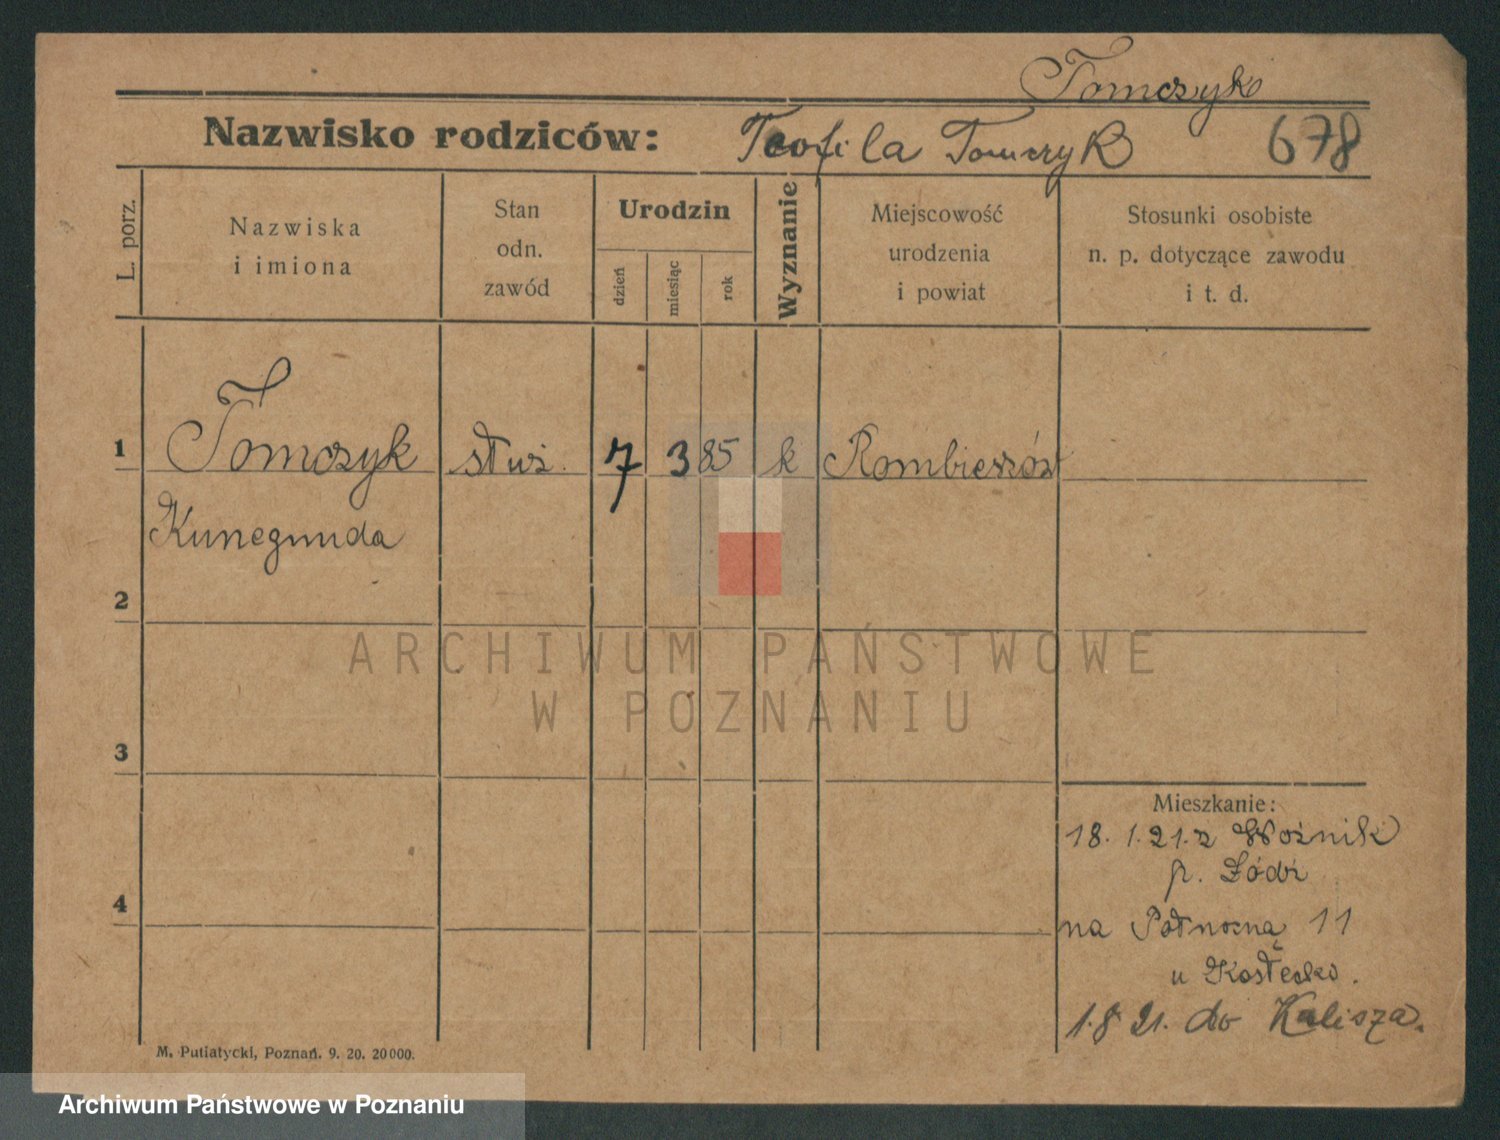 Tomczyk
Nazwisko rodziców: Teofila Tomczyk 678
L. porz.
Nazwiska
i imiona
Stan
odn.
zawód
Urodzin
dzień
miesiąc
rok
Wyznanie
Miejscowość
urodzenia
i powiat
Stosunki osobiste
n. p. dotyczące zawodu
i t. d.
1 Tomczyk służ. 7 3 85 k
Kunegunda
2
ARCHIWUM PAŃSTWOWE
W POZNANIU
3
Mieszkanie:
18. 1. 21. z Woźnik
p. Łódź
4
na Północną 11
u
1. 8 21. do Kalisza.
M. Putiatycki, Poznań. 9. 20. 20000.
Archiwum Państwowe w Poznaniu